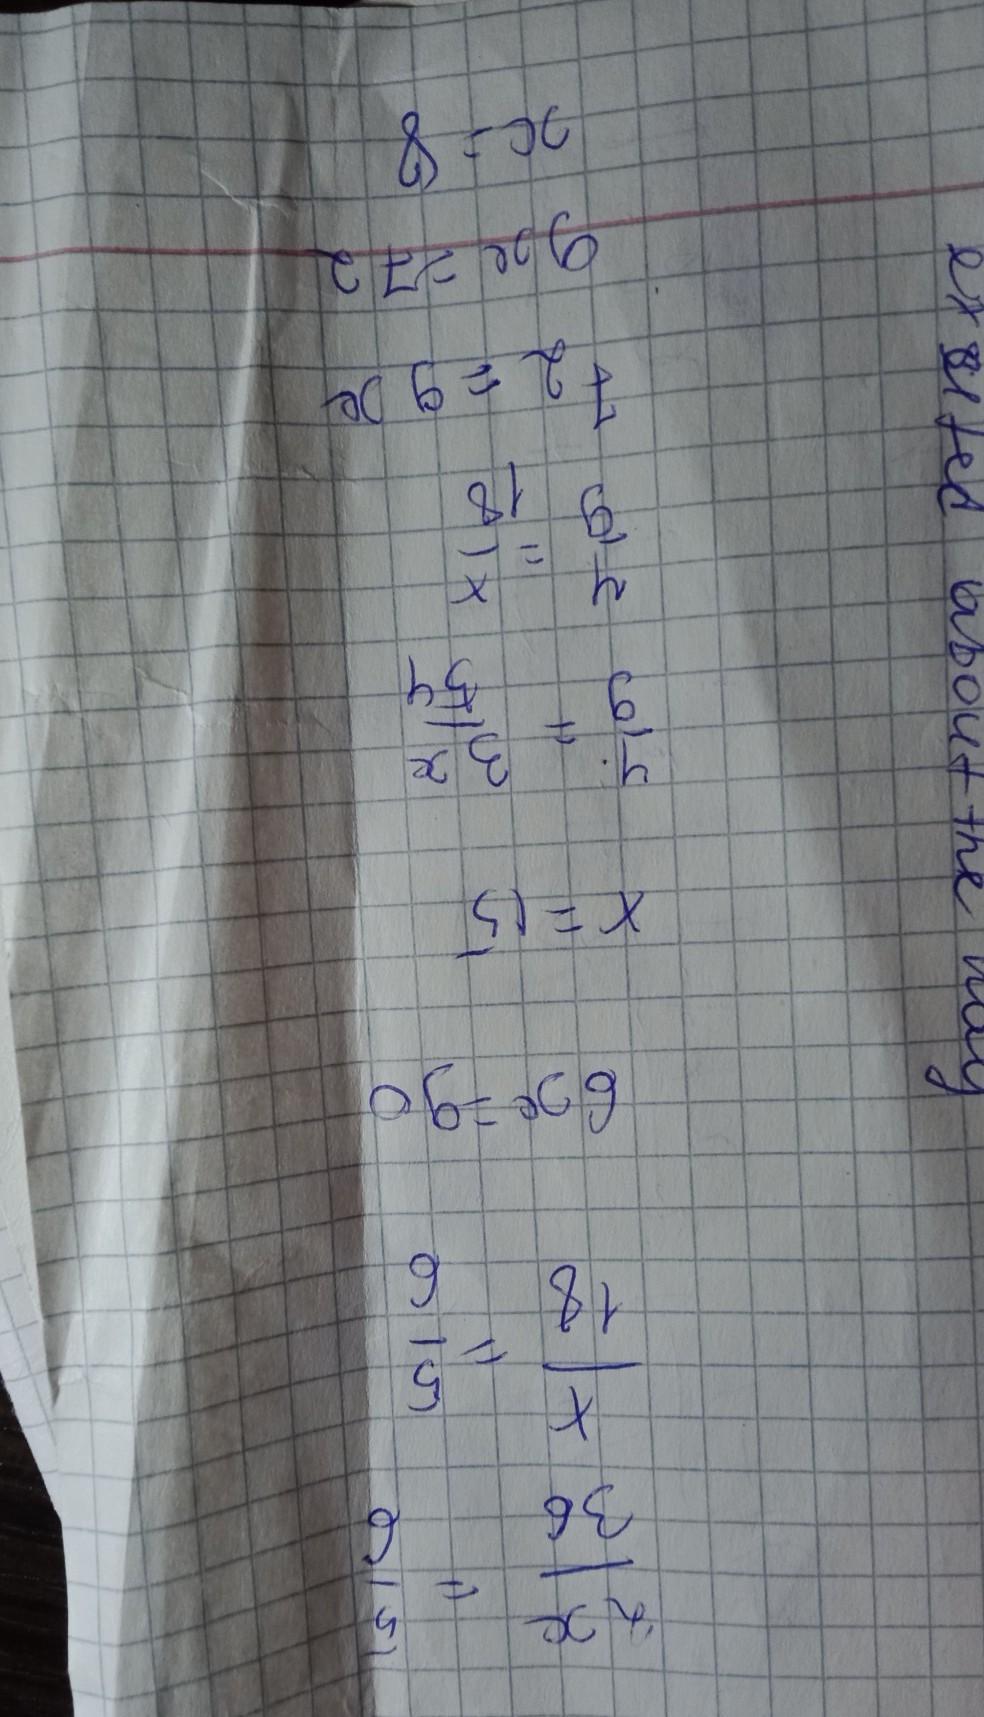 2x/36 = 5/6
x/18 = 5/6
6x = 90
x = 15
4/9 = 3x/54
4/9 = x/18
72 = 9x
9x = 72
x = 8
about the